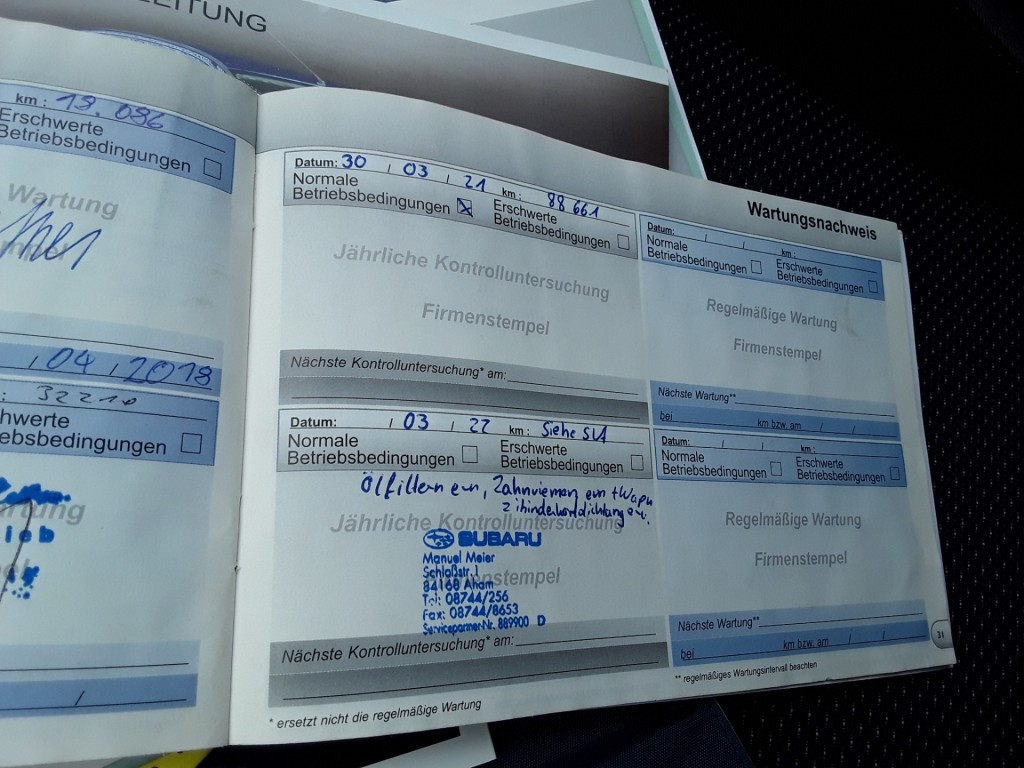 LEITUNG
km : 13.086
Erschwerte
Betriebsbedingungen
Wartung
04 / 2018
32210
Erschwerte
Betriebsbedingungen
Wartungsnachweis
Datum: 30 / 03 / 21 km : 88 661
Normale
Betriebsbedingungen
Erschwerte
Betriebsbedingungen
Jährliche Kontrolluntersuchung
Firmenstempel
Nächste Kontrolluntersuchung* am:
Datum: / 03 / 22 km : Siehe
Normale
Betriebsbedingungen
Erschwerte
Betriebsbedingungen
Jährliche Kontrolluntersuchung
SUBARU
Manuel Meier
Schloßstr.1
Firmenstempel
84168 Aham
Tel: 08744/256
Fax: 08744/8653
Servicepartner-Nr. 889900 D
Nächste Kontrolluntersuchung* am:
* ersetzt nicht die regelmäßige Wartung
Datum: / / km :
Normale
Betriebsbedingungen
Erschwerte
Betriebsbedingungen
Regelmäßige Wartung
Firmenstempel
Nächste Wartung**
bei km bzw. am / /
Datum: / / km :
Normale
Betriebsbedingungen
Erschwerte
Betriebsbedingungen
Regelmäßige Wartung
Firmenstempel
Nächste Wartung**
bei km bzw. am / /
** regelmäßiges Wartungsintervall beachten
31